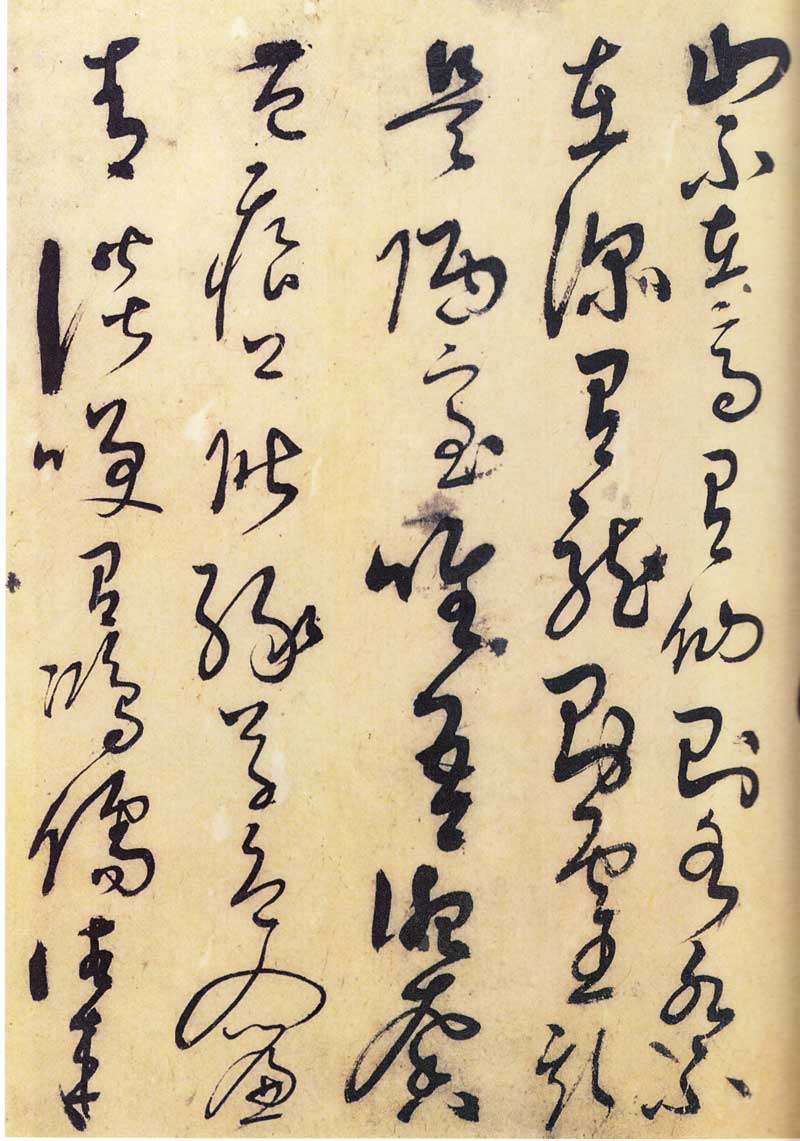 山不在高有仙則名水不
在深有龍則靈斯
是陋室唯吾德馨
苔痕上階緑草色入簾
青談咲有鴻儒往來